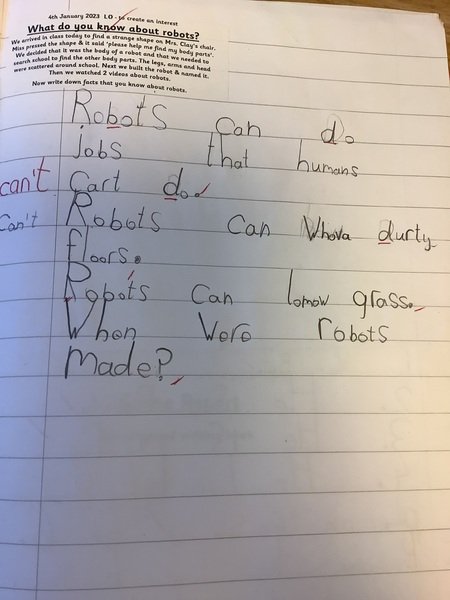 4th January 2023 LO - to create an interest
What do you know about robots?
We arrived in class today to find a strange shape on Mrs. Clay's chair.
Miss pressed the shape & it said 'please help me find my body parts'.
We decided that it was the body of a robot and that we needed to
search school to find the other body parts. The legs, arms and head
were scattered around school. Next we built the robot & named it.
Then we watched 2 videos about robots.
Now write down facts that you know about robots.
Robots can do
jobs that humans
can't cart do.
Can't Robots can Whova durty
floors.
Robots can lomow grass.
When Were robots
made?